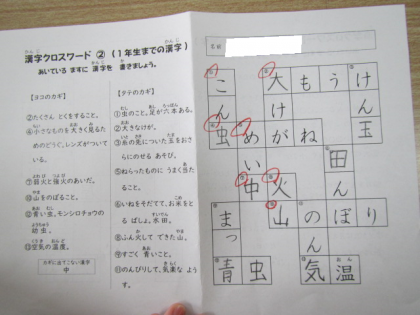 漢字クロスワード ② (1年生までの漢字)
あいている ますに 漢字を 書きましょう。
【ヨコのカギ】
②たくさん とくをすること。
④小さなものを 大きく見るた
めのどうぐ。レンズがついて
いる。
⑦昼火と後火のあいだ。
⑩山をのぼること。
⑫青い虫。モンシロチョウの
幼虫。
⑬空気の温度。
カギに出てこない漢字
中
【タテのカギ】
①虫のこと。足が六本ある。
②大きなけが。
③糸の先についた玉をおさ
らにのせる あそび。
⑤ねらったものに うまく当た
ること。
⑥いねをそだてて、お米をと
る ばしょ。水田。
⑧ふん火して できた山。
⑨すごく 青いこと。
⑪のんびりして、気楽な よう
す。
名前
こ 大もうけ
ん け ん
虫めがね 玉
い 田
中火 ん
ま 山のぼり
っ ん
青虫 気温